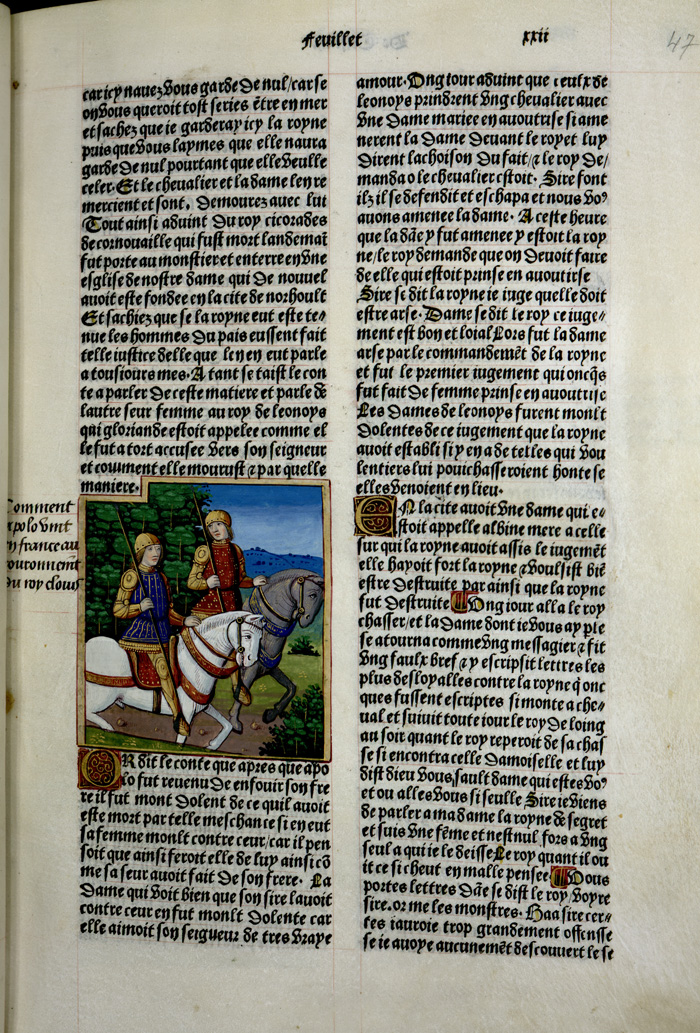 Feuillet xxii
47
car icy navez vous garde de nul/car se
on vous queroit tost series etre en mer
et sachez que ie garderay icy la royne
puis que vous laymes que elle naura
garde de nul pourtant que elle veulle
celer. Et le chevalier et la dame len re
mercient et sont. demourez avec lui
Tout ainsi advint du roy cicorades
de cornouaille qui fust mort landemai
fut porte au monstier et enterre en vne
esglise de nostre dame qui de nouuel
auoit este fondee en la cite de norhoult
Et sachiez que se la royne eut este te-
nue les hommes du pais eussent fait
telle iustice delle que len en eut parle
a tousiours mes. A tant se taist le con
te a parler de ceste matiere et parle de
lautre seur femme au roy de leonoys
qui gloriande estoit appelee comme el
le fut a tort accusee vers son seigneur
et comment elle mourust & par quelle
maniere.
Comment
apolo vint
en france au
couronnement
du roy clouis
OR dit le conte que apres que apo
lo fut revenu de enfouir son fre
re il fut mont dolent de ce quil auoit
este mort par telle meschance si en eut
sa femme monlt contre ceur/car il pen
soit que ainsi feroit elle de luy ainsi co
me sa seur auoit fait de son frere. La
dame qui voit bien que son sire lauoit
contre ceur en fut monlt dolente car
elle aimoit son seigueur de tres vraye
amour. Ung iour aduint que ceulx de
leonoys prindrent vng chevalier avec
vne dame mariee en auoutire si ame
nerent la dame deuant le roy et luy
dirent lachoison du fait/& le roy de/
manda o le chevalier estoit. Sire font
ilz il se defendit et eschapa et nous vo9
auons amenee la dame. A ceste heure
que la dae y fut amenee y estoit la roy
ne/le roy demande que on devoit faire
de elle qui estoit prinse en auoutirse
Sire se dit la royne ie iuge quelle doit
estre arse. Dame se dit le roy ce iuge-
ment est bon et loial Lors fut la dame
arse par le commandemet de la royne
et fut le premier iugement qui oncqs
fut fait de femme prinse en auoutrise
Les dames de leonoys furent monlt
dolentes de ce iugement que la royne
auoit establi si y en a de telles qui vou
lentiers lui pouichasseroient honte se
elles venoient en lieu.
EN la cite auoit vne dame qui e-
stoit appelle albine mere a celle
sur qui la royne auoit assis le iugemet
elle hayoit fort la royne & voulsist bie
estre destruite par ainsi que la royne
fut destruite Vng iour alla le roy
chasser/et la dame dont ie vous ay ple
se atourna comme vng messagier & fit
vng faulx bref & y escripsit lettres les
plus desloyalles contre la royne q onc
ques fussent escriptes si monte a che-
ual et suiuit toute iour le roy de loing
au soir quant le roy reperoit de sa chas
se si encontra celle damoiselle et luy
dist dieu vous sault dame qui estes vo9
et ou alles vous si seulle Sire ie viens
de parler a ma dame la royne de segret
et suis vne feme et nest nul fors a vng
seul a qui ie le deisse Le roy quant il ou
it ce si cheut en malle pensee Vous
portes lettres dae se dist le roy/voyre
sire. or me les monstres. Haa sire cer-
tes iauroie trop grandement offensse
se ie avoye aucunemet descouuert le se